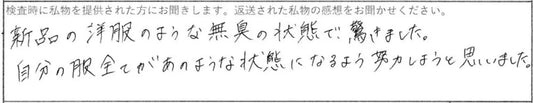 検査時に私物を提供された方にお聞きします。返送された私物の感想をお聞かせください。
新品の洋服のような無臭の状態で、驚きました。
自分の服全てがあのような状態になるよう努力しようと思いました。